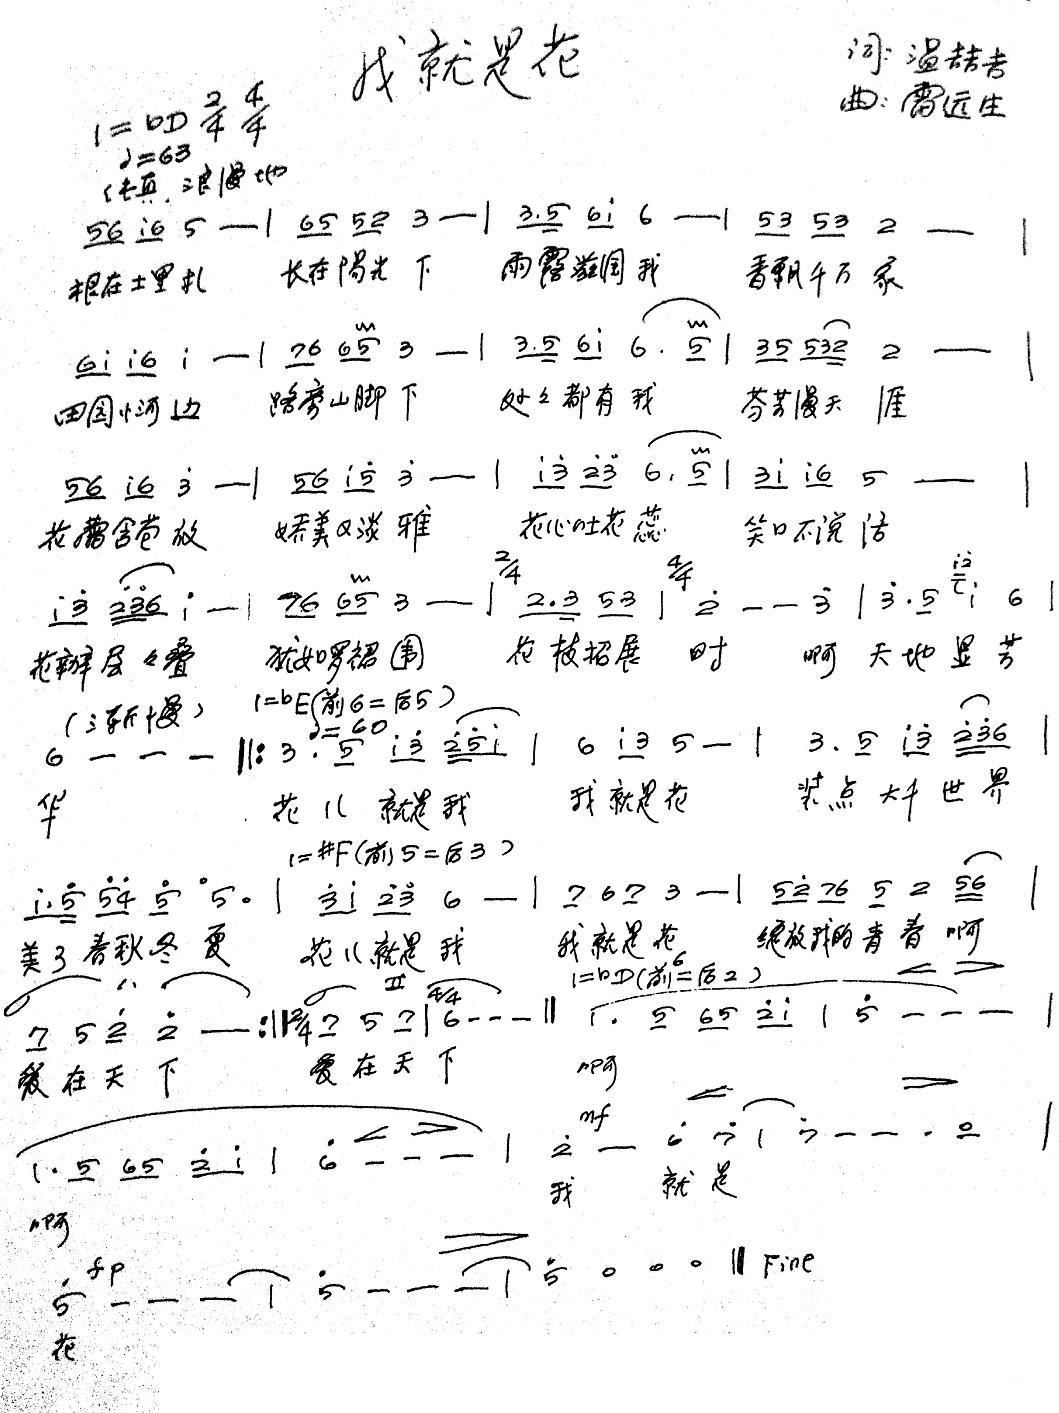 我就是花
词: 温喆吉
曲: 雷远生
1=bD 2/4 4/4
♩=63
纯真 浪漫地
56 i6 5 — | 65 52 3 — | 3.5 6i 6 — | 53 53 2 — |
根在土里扎 长在阳光下 雨露滋润我 香飘千万家
6i i6 i — | 76 65 3 — | 3.5 6i 6. 5 | 35 532 2 — |
田园小河边 路旁山脚下 处々都有我 芬芳漫天涯
56 i6 3̇ — | 56 i5̇ 3̇ — | i3̇ 2̇3̇ 6. 5 | 3i i6 5 — |
花蕾含苞放 娇美又淡雅 花心吐花蕊 笑口不说话
i3̇ 2̇3̇6 i — | 76 65 3 — | 2/4 2.3 53 | 4/4 2̇ — — 3̇ | 3̇.5 i 6 |
花瓣层々叠 犹如罗裙围 花枝招展时 啊天地显芳
(渐慢) 1=bE(前6=后5)
♩=60
6 — — — ‖: 3. 5 i3̇ 2̇5̇i | 6 i3 5 — | 3. 5 i3̇ 2̇3̇6 |
华 花儿就是我 我就是花 装点大千世界
1=#F(前5=后3)
i.5̇ 5̇4̇ 5̇ 5. | 3̇i 2̇3̇ 6 — | 7 67 3 — | 52̇ 76 5 2 56 |
美了春秋冬夏 花儿就是我 我就是花 绽放我的青春啊
1=bD(前6=后2)
7 5 2̇ 2̇ — :‖ 2/4 7 5 7 | 4/4 6 - - - ‖ 1. 5 65 2̇i | 5̇ - - - |
爱在天下 爱在天下 啊
II
1. 5 65 2̇ i | 6̇ - - - | 2̇ — 6̇ 7̇ | 7̇ - - - . 0 |
mf
啊 我 就是
fp
5̇ - - - | 5̇ - - - | 5̇ 0 0 0 ‖ Fine
花